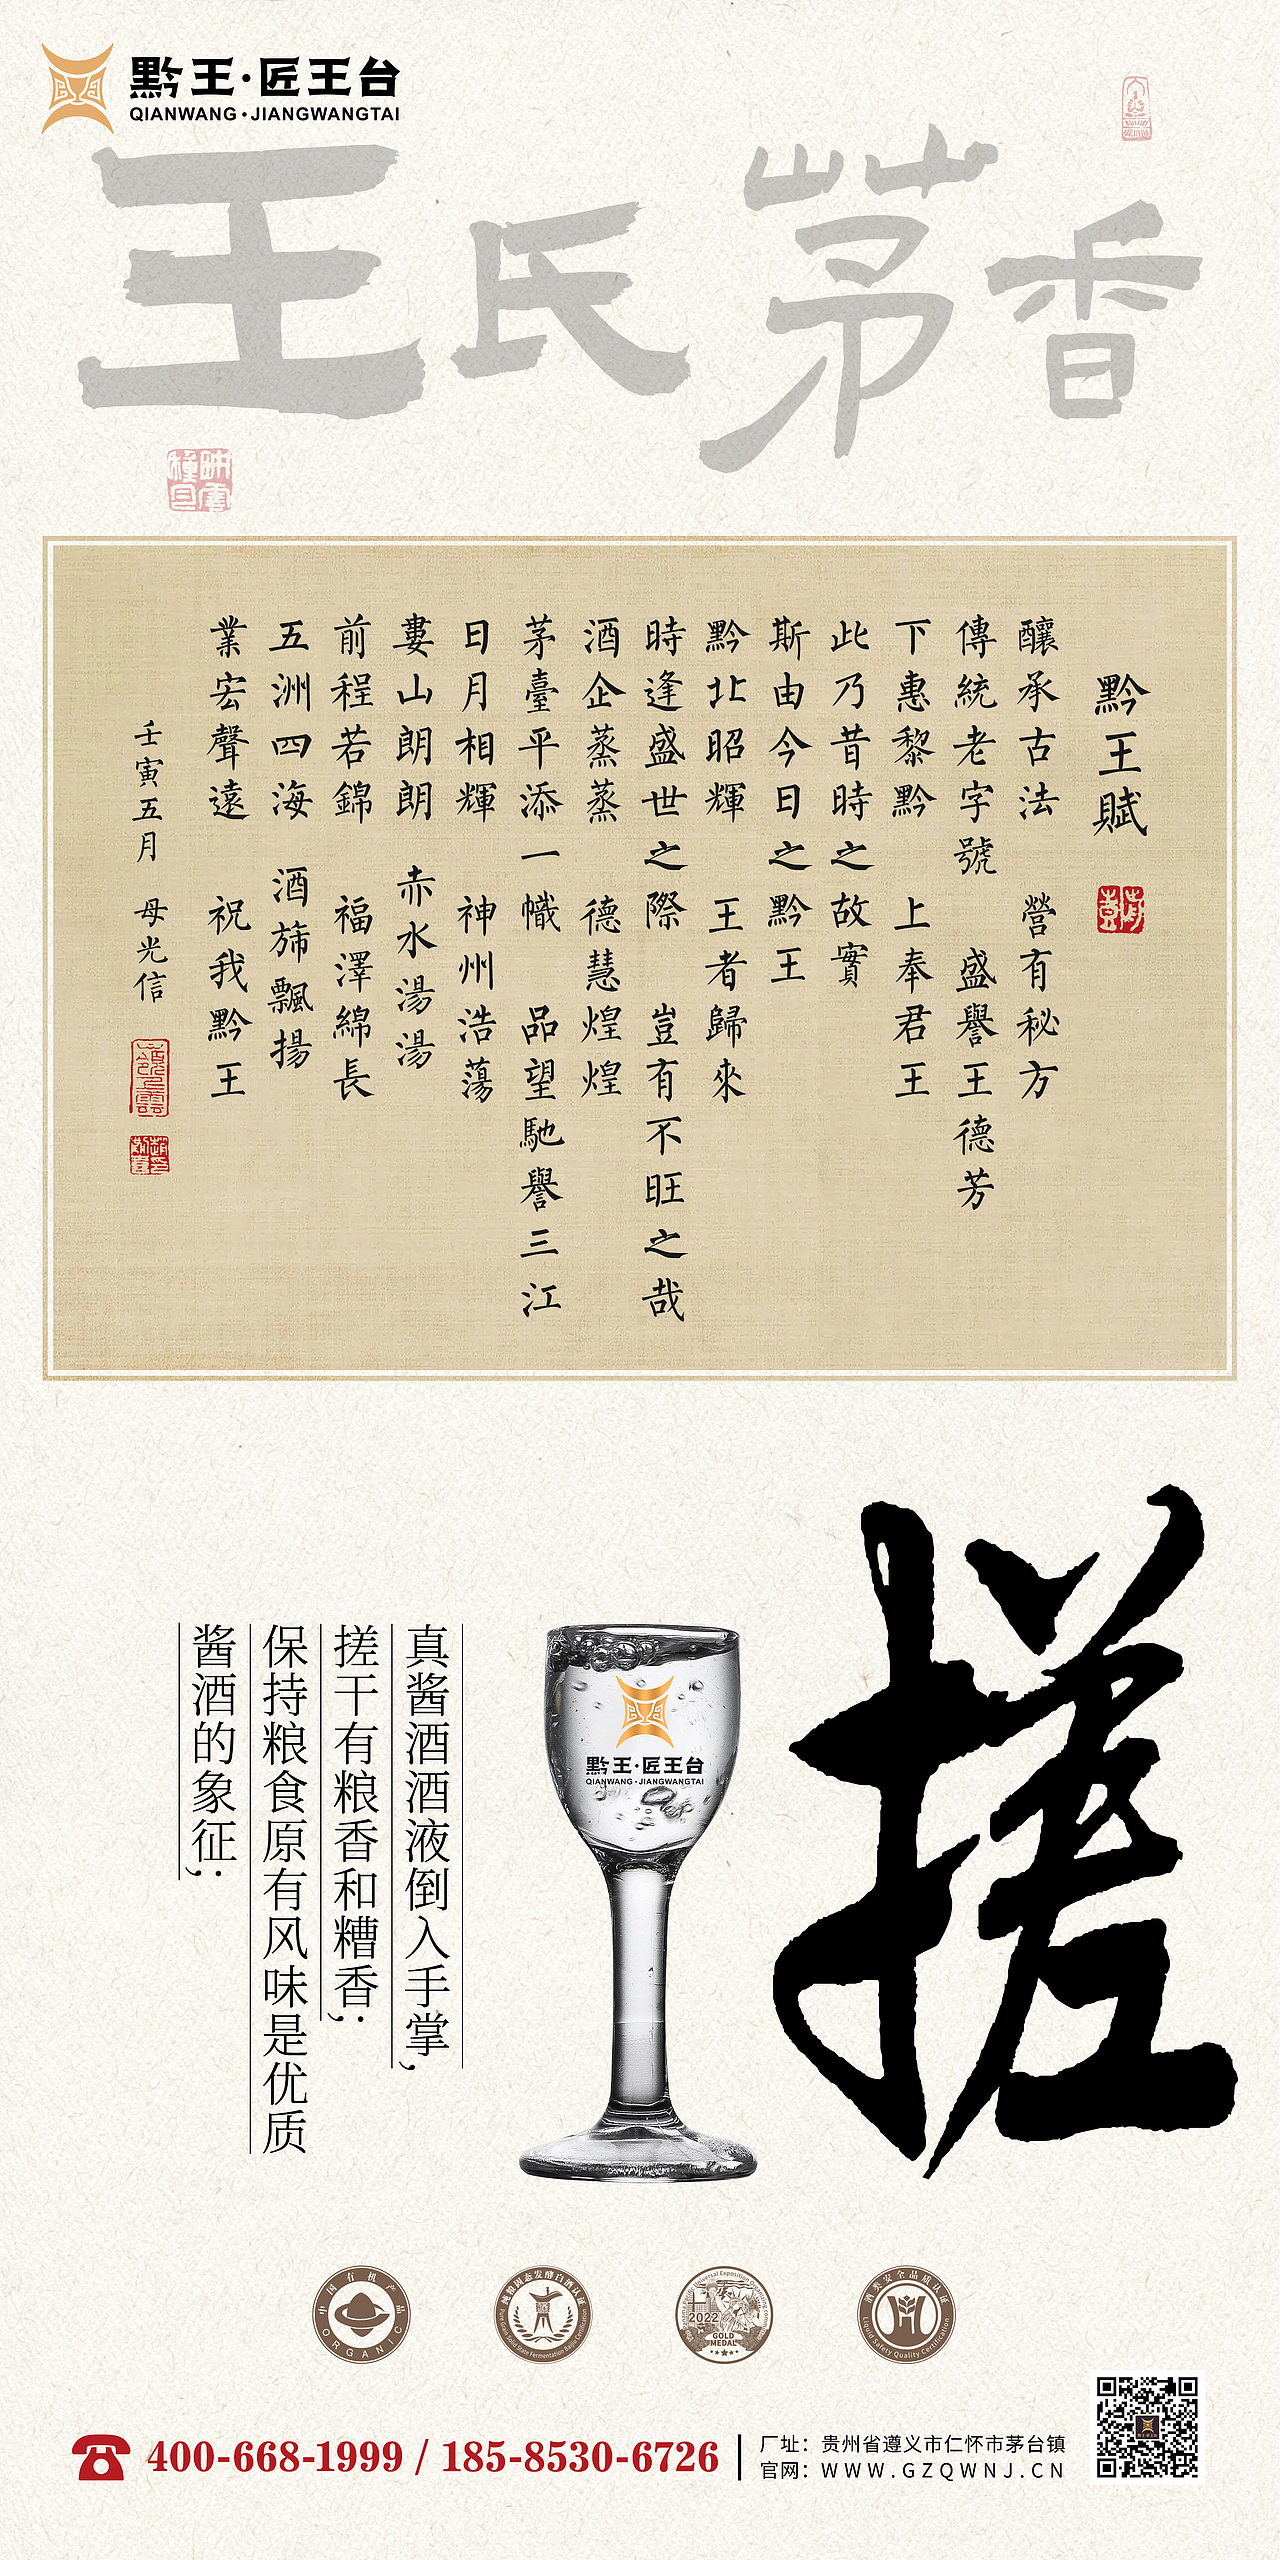 黔王·匠王台
QIANWANG·JIANGWANGTAI
王氏茅香
黔王賦
釀承古法 營有秘方
傳統老字號 盛譽王德芳
下惠黎黔 上奉君王
此乃昔時之故實
斯由今日之黔王
黔北昭輝 王者歸來
時逢盛世之際 豈有不旺之哉
酒企蒸蒸 德慧煌煌
茅臺平添一幟 品望馳譽三江
日月相輝 神州浩蕩
婁山朗朗 赤水湯湯
前程若錦 福澤綿長
五洲四海 酒斾飄揚
業宏聲遠 祝我黔王
壬寅五月 母光信
搓
黔王·匠王台
QIANWANG·JIANGWANGTAI
真酱酒酒液倒入手掌,
搓干有粮香和糟香;
保持粮食原有风味是优质
酱酒的象征;
中国有机产品
ORGANIC
纯粮固态发酵白酒认证
Pure Grain Solid State Fermentation Baijiu Certification
2022
GOLD
MEDAL
酒类安全品质认证
Liquid Safety Quality Certification
400-668-1999 / 185-8530-6726
厂址：贵州省遵义市仁怀市茅台镇
官网：WWW.GZQWNJ.CN